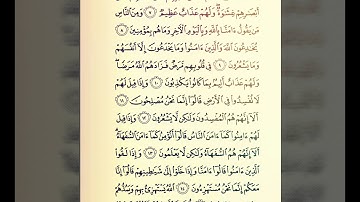 أَبْصَٰرِهِمْ غِشَٰوَةٌ وَلَهُمْ عَذَابٌ عَظِيمٌ ٧ وَمِنَ النَّاسِ
مَن يَقُولُ ءَامَنَّا بِاللَّهِ وَبِالْيَوْمِ الْءَاخِرِ وَمَا هُم بِمُؤْمِنِينَ ٨
يُخَٰدِعُونَ اللَّهَ وَالَّذِينَ ءَامَنُوا وَمَا يَخْدَعُونَ إِلَّا أَنفُسَهُمْ
وَمَا يَشْعُرُونَ ٩ فِي قُلُوبِهِم مَّرَضٌ فَزَادَهُمُ اللَّهُ مَرَضًا
وَلَهُمْ عَذَابٌ أَلِيمٌ بِمَا كَانُوا يَكْذِبُونَ ١٠ وَإِذَا قِيلَ لَهُمْ
لَا تُفْسِدُوا فِي الْأَرْضِ قَالُوا إِنَّمَا نَحْنُ مُصْلِحُونَ ١١
أَلَا إِنَّهُمْ هُمُ الْمُفْسِدُونَ وَلَٰكِن لَّا يَشْعُرُونَ ١٢ وَإِذَا قِيلَ
لَهُمْ ءَامِنُوا كَمَا ءَامَنَ النَّاسُ قَالُوا أَنُؤْمِنُ كَمَا ءَامَنَ السُّفَهَاءُ
أَلَا إِنَّهُمْ هُمُ السُّفَهَاءُ وَلَٰكِن لَّا يَعْلَمُونَ ١٣ وَإِذَا لَقُوا
الَّذِينَ ءَامَنُوا قَالُوا ءَامَنَّا وَإِذَا خَلَوْا إِلَىٰ شَيَٰطِينِهِمْ قَالُوا إِنَّا
مَعَكُمْ إِنَّمَا نَحْنُ مُسْتَهْزِءُونَ ١٤ اللَّهُ يَسْتَهْزِئُ بِهِمْ وَيَمُدُّهُمْ